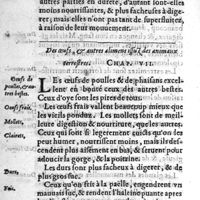 autres parties en dureté, dont elles sont
moins nourrissantes, & plus fascheuses à dige-
rer; mais elles n'ont pas tant de superfluitez,
à raison de leur mouvement.
Des œufs, & autres alimens issus des animaux
terrestres. CHAP. VII.
LEs œufs de poulles & de phaisans excel-
lent en bonté ceux des autres bestes.
Ceux d'oye sont les pires de tous.
Les œufs frais vallent beaucoup mieux
que les vieils pondus. Les mollets sont de meil-
leure digestion & nourriture, que les autres:
Ceux qui sont si legerement cuits, que
nourrissent moins que les autres, mais ils des-
cendent plus aisement en bas, & servent pour
adoucir la gorge, & la poitrine.
Les durs sont plus fascheux à digerer, & de
plus gros suc:
Ceux qu'on frit à la paelle, engendrent un
mauvais suc, & rendent l'haleine puante apres
Oeufs de
poulles, & au-
tres bestes.
Oeufs frais.
Mollets.
Clairets.
Durs.
Fris.